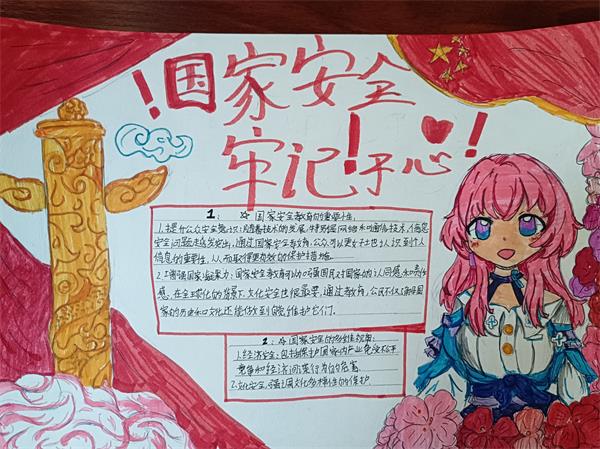 ！国家安全
牢记！于心！
1：☆国家安全教育的重要性：
1.提升公众安全意识：随着技术的发展，特别是网络和通信技术，信息
安全问题越发突出，通过国家安全教育，公众可以更好地认识到个人
信息的重要性，从而取得更有效的保护措施。
2.增强国家凝聚力：国家安全教育可以增强国民对国家的认同感和责任
感，在全球化的背景下，文化安全也很重要，通过教育，公民不仅
家的历史和文化还能做到自觉维护它们。
2：☆国家安全的多维
1.经济安全：包括保护国家内产业免受不平
竞争和经济间谍行为的危害。
2.文化安全：强调文化多样性的保护